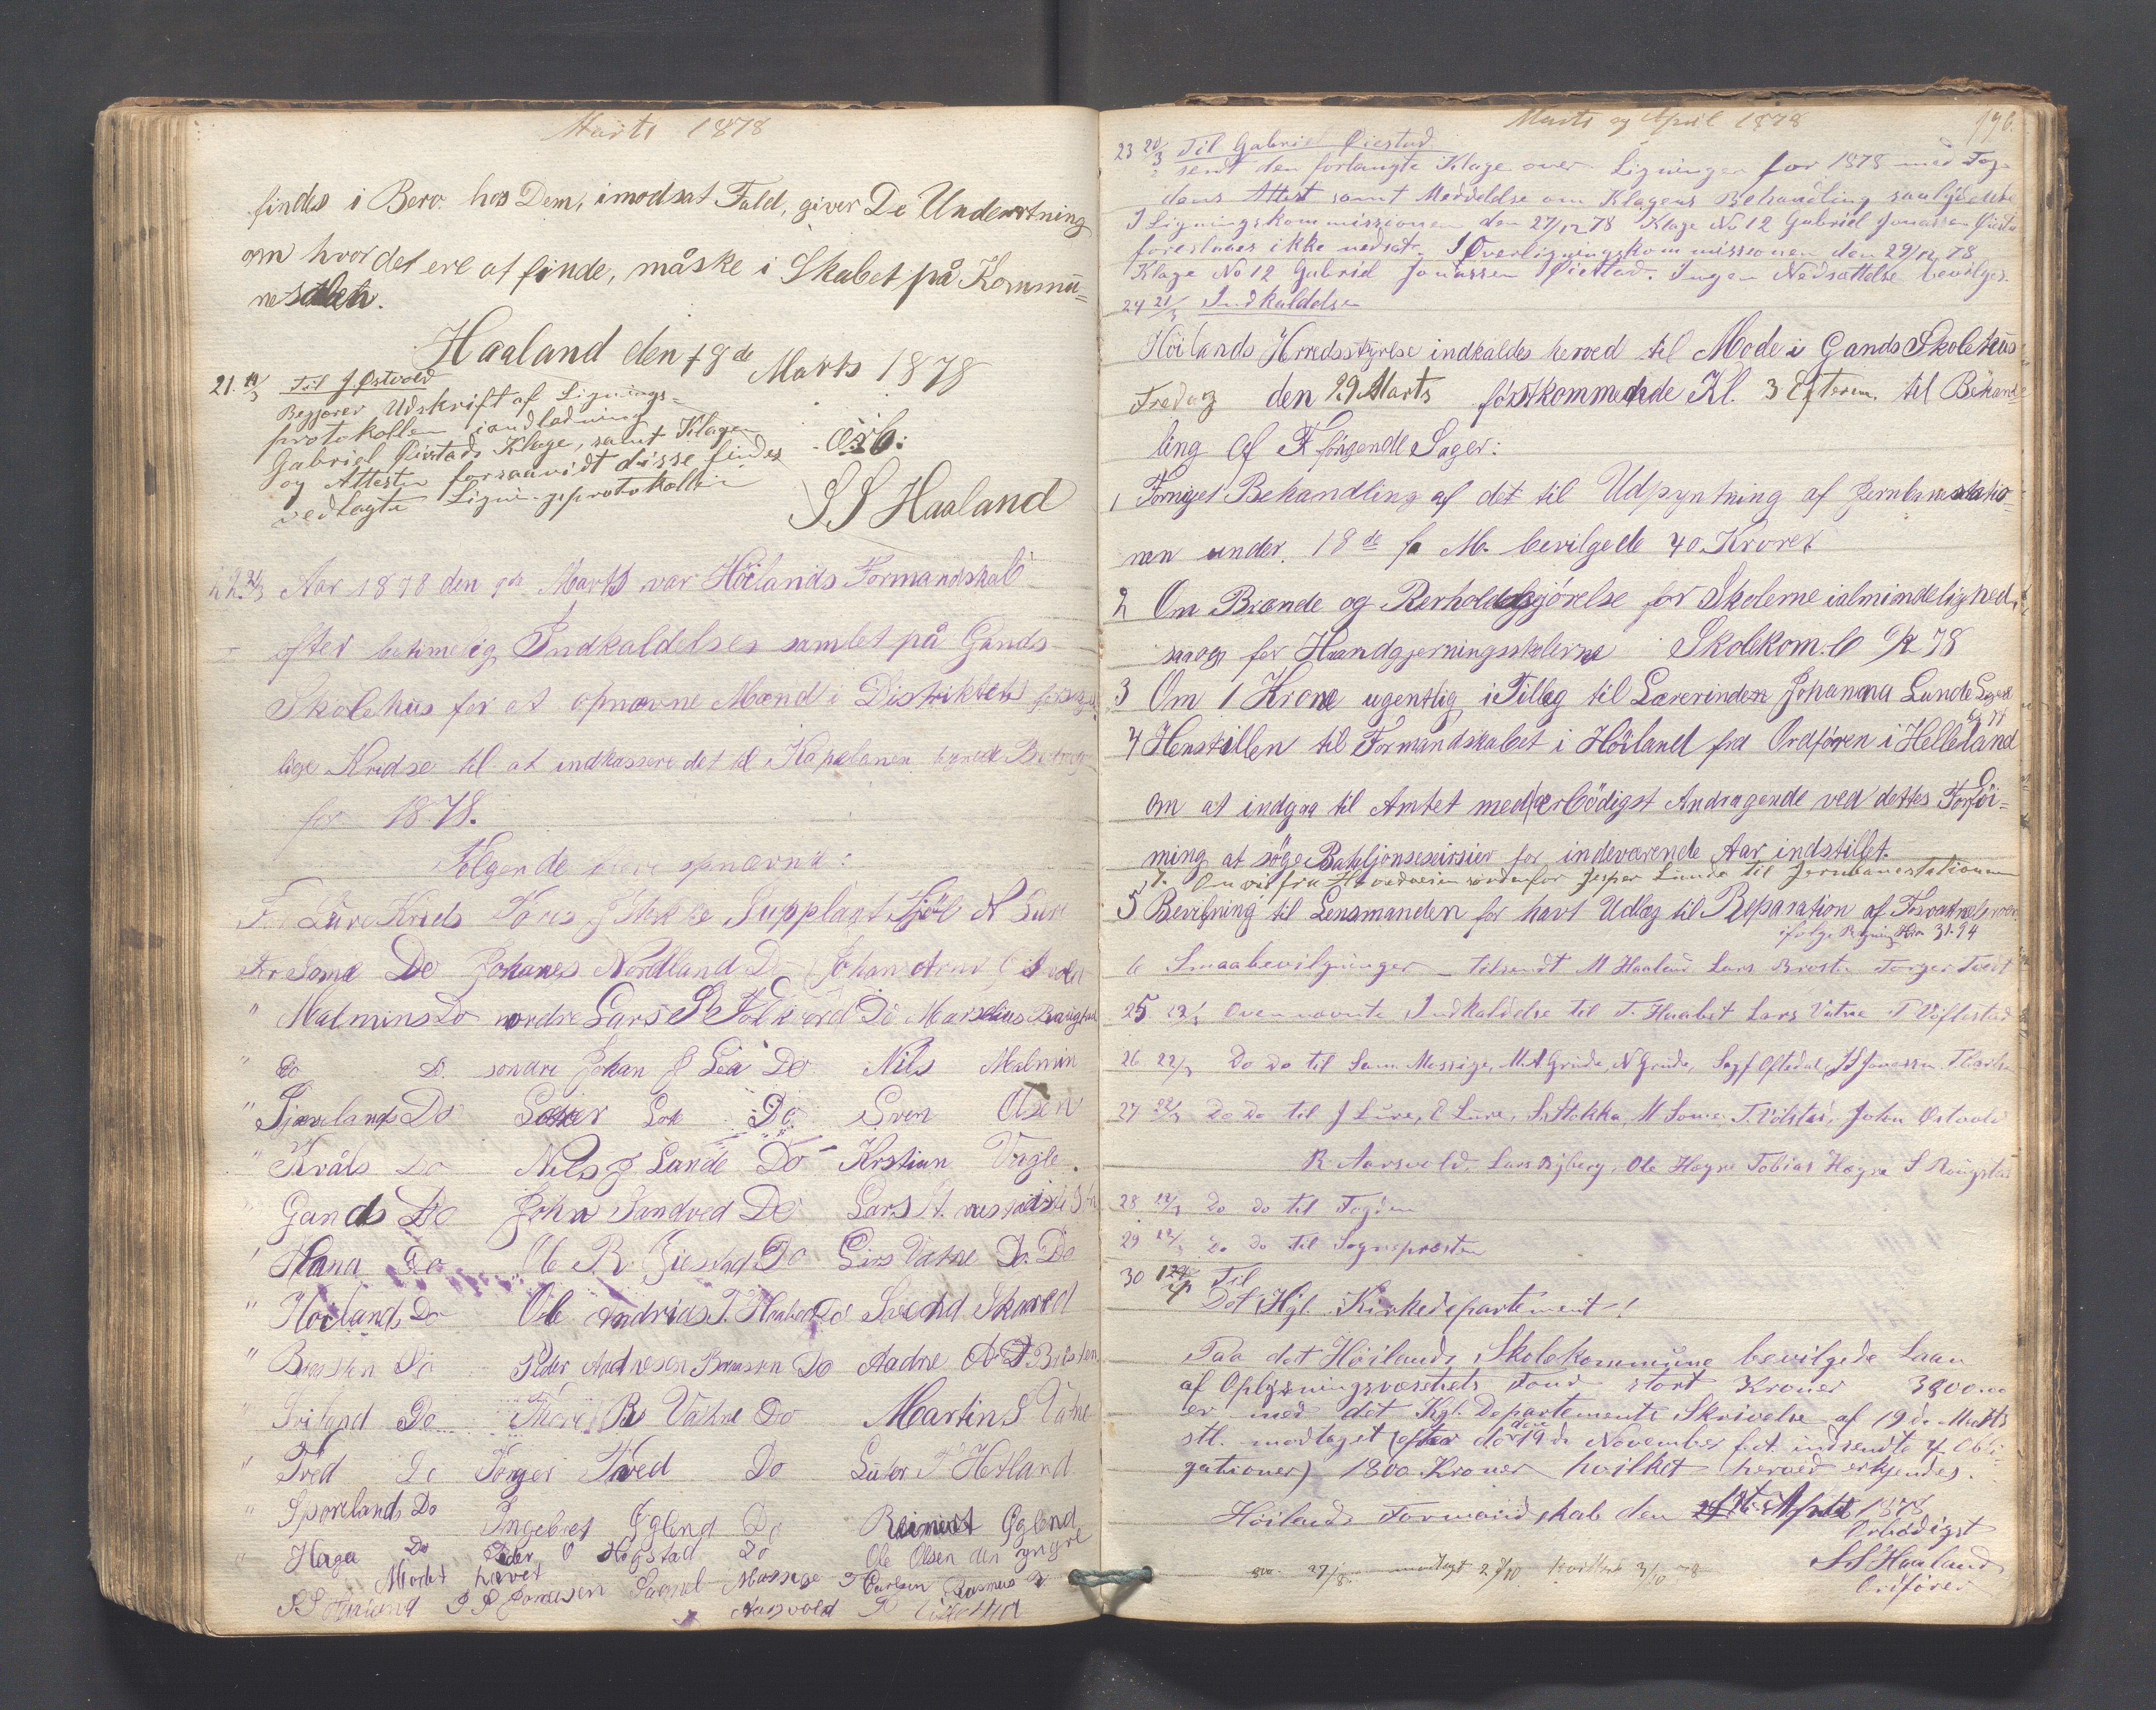 Marts 1878
findes i Bero. hos Dem, imodsat Fald, giver De Underretning
om hvor det ere at finde, måske i Skabet på Kommu=
neskatten.
Haaland den 18de Marts 1878
ærb:
S S Haaland
21. 19/3 Til J Østvold
Begjærer Udskrift af Lignings=
protokollen iandledning
Gabriel Øiestads Klage, samt Klagen
og Attesten forsaavidt disse findes
vedlagte Ligningsprotokollen
22. 21/3 Aar 1878 den 9de Marts var Höilands Formandskab
efter betimelig Indkaldelses samlet på Gands
Skolehus for at opnævne Mænd i Distriktets forskjel
lige Kredse til at indkassere det til Kapelanen lignede Bidrag
for 1878.
Følgende bleve opnævnte:
For Lure Kreds Lars J Stokke Supplant Sjöl N Lure
For Soma Do Johanes Nordland Do Johan Arnt Östvold
" Malmins Do nordre Lars P Folkvord Do Marselius Rougstad
" do D. sondre Johan J Lea Do Nils Malmin
" Skjæveland Do Do Sven Olsen
" Kråls Do Nils J Lande Do Krstian Vagle.
" Gands Do John Sandved Do Lars A.
" Hana Do Ole R. Øiestad Do Lars Vatne Do. Do
" Hoiland Do Ole Andrias T. Haabet Do Svend Skaared
" Brousten Do Peder Andresen Brousten Do Aadne A Bresten
" Sviland Do Thore Bs Vatne Do Martin S Vatne
" Tved Do Torger Tved Do Lutor T Hetland
" Sporeland Do Ingebret Ögland Do Reinert Ögland
" Haga Do Peder O Hogstad Do Ole Olsen den yngre
Modet hævet
S S Haaland J S Jonasen Samuel Messige T Carlsen Rasmus R
Aarsvold T Vølstad
Marts og April 1878 196.
23 20/3 Til Gabriel Øiestad
sendt den forlangte Klage over Ligningen for 1878 med Fog-
dens Attest samt Meddelelse om Klagens Behandling saalydende
I Ligningskommissionen den 27/12 78 Klage No 12 Gabriel Jonassen Øiestad
foreslaaes ikke nedsat. I Overligningskommissionen den 29/12 78
Klage No 12 Gabriel Jonassen Øiestad. Ingen Nedsættelse bevilges.
24 21/3 Indkaldelse
Höilands Herredsstyrelse indkaldes herved til Mode i Gands Skolehus
Fredag den 29 Marts förstkommende Kl. 3 Efterm. til Behand=
ling af Fölgende Sager:
1 Fornyet Behandling af det til Udpyntning af Jernbanestatio=
nen under 18de f. M. bevilgede 40 Kroner
2 Om Brænde og Renholdelsgjörelse for Skolerne ialmindelighed,
saaog for Haandgjerningsskolerne Skolekom. b 78
3 Om 1 Krone ugentlig i Tillæg til Lærerinden Johanna Lunde
4 Henstillen til Formandskabet i Höiland fra Ordfören i Helleland
om at indgaa til Amtet med ærbödigst Andragende ved dettes Forföi=
ning at söge Bataljonsexersier for indeværende Aar indstillet.
7. Om vei fra Hovedveien nordenfor Jesper Lunde til Jernbanestationen
5 Bevilgning til Lensmanden for havt Udlæg til Reparation af
ifølge Regning Kr 31.94
6 Smaabevilgninger – tilsendt M Haaland Lars Brosten Torger Tvedt
25. 22/3 Ovennævnte Indkaldelse til T. Haabet Lars Vatne T Vølstad
26 22/3 Do Do til Sam. Messige, M A Grude, N Grude, Oftedal, J S Jonassen
27 22/3 Do Do til J Lure, E Lure, S. Stokka, M Soma, T. Völstad, John Østvold
R. Aarsvold, Lars Bjberg, Ole Hogne Tobias Hogne S Rougstad
28 22/3 Do Do til Fogden
29 22/3 Do Do til Sognepresten
30 Til
Det Kgl. Kirkedepartement!
Paa det Höilands Skolekommune bevilgede Laan
af Oplysningsvæsenets Fond stort Kroner 3800.00
er med det Kgl. Departements Skrivelse af 19de Marts
stl. modtaget (efter de den 19de November f. A. indsendte 4 Obli
gationer) 1800 Kroner hvilket herved erkjendes.
Höilands Formandskab den 1ste April 1878
Ærbödigst
S S Haaland
Ordförer